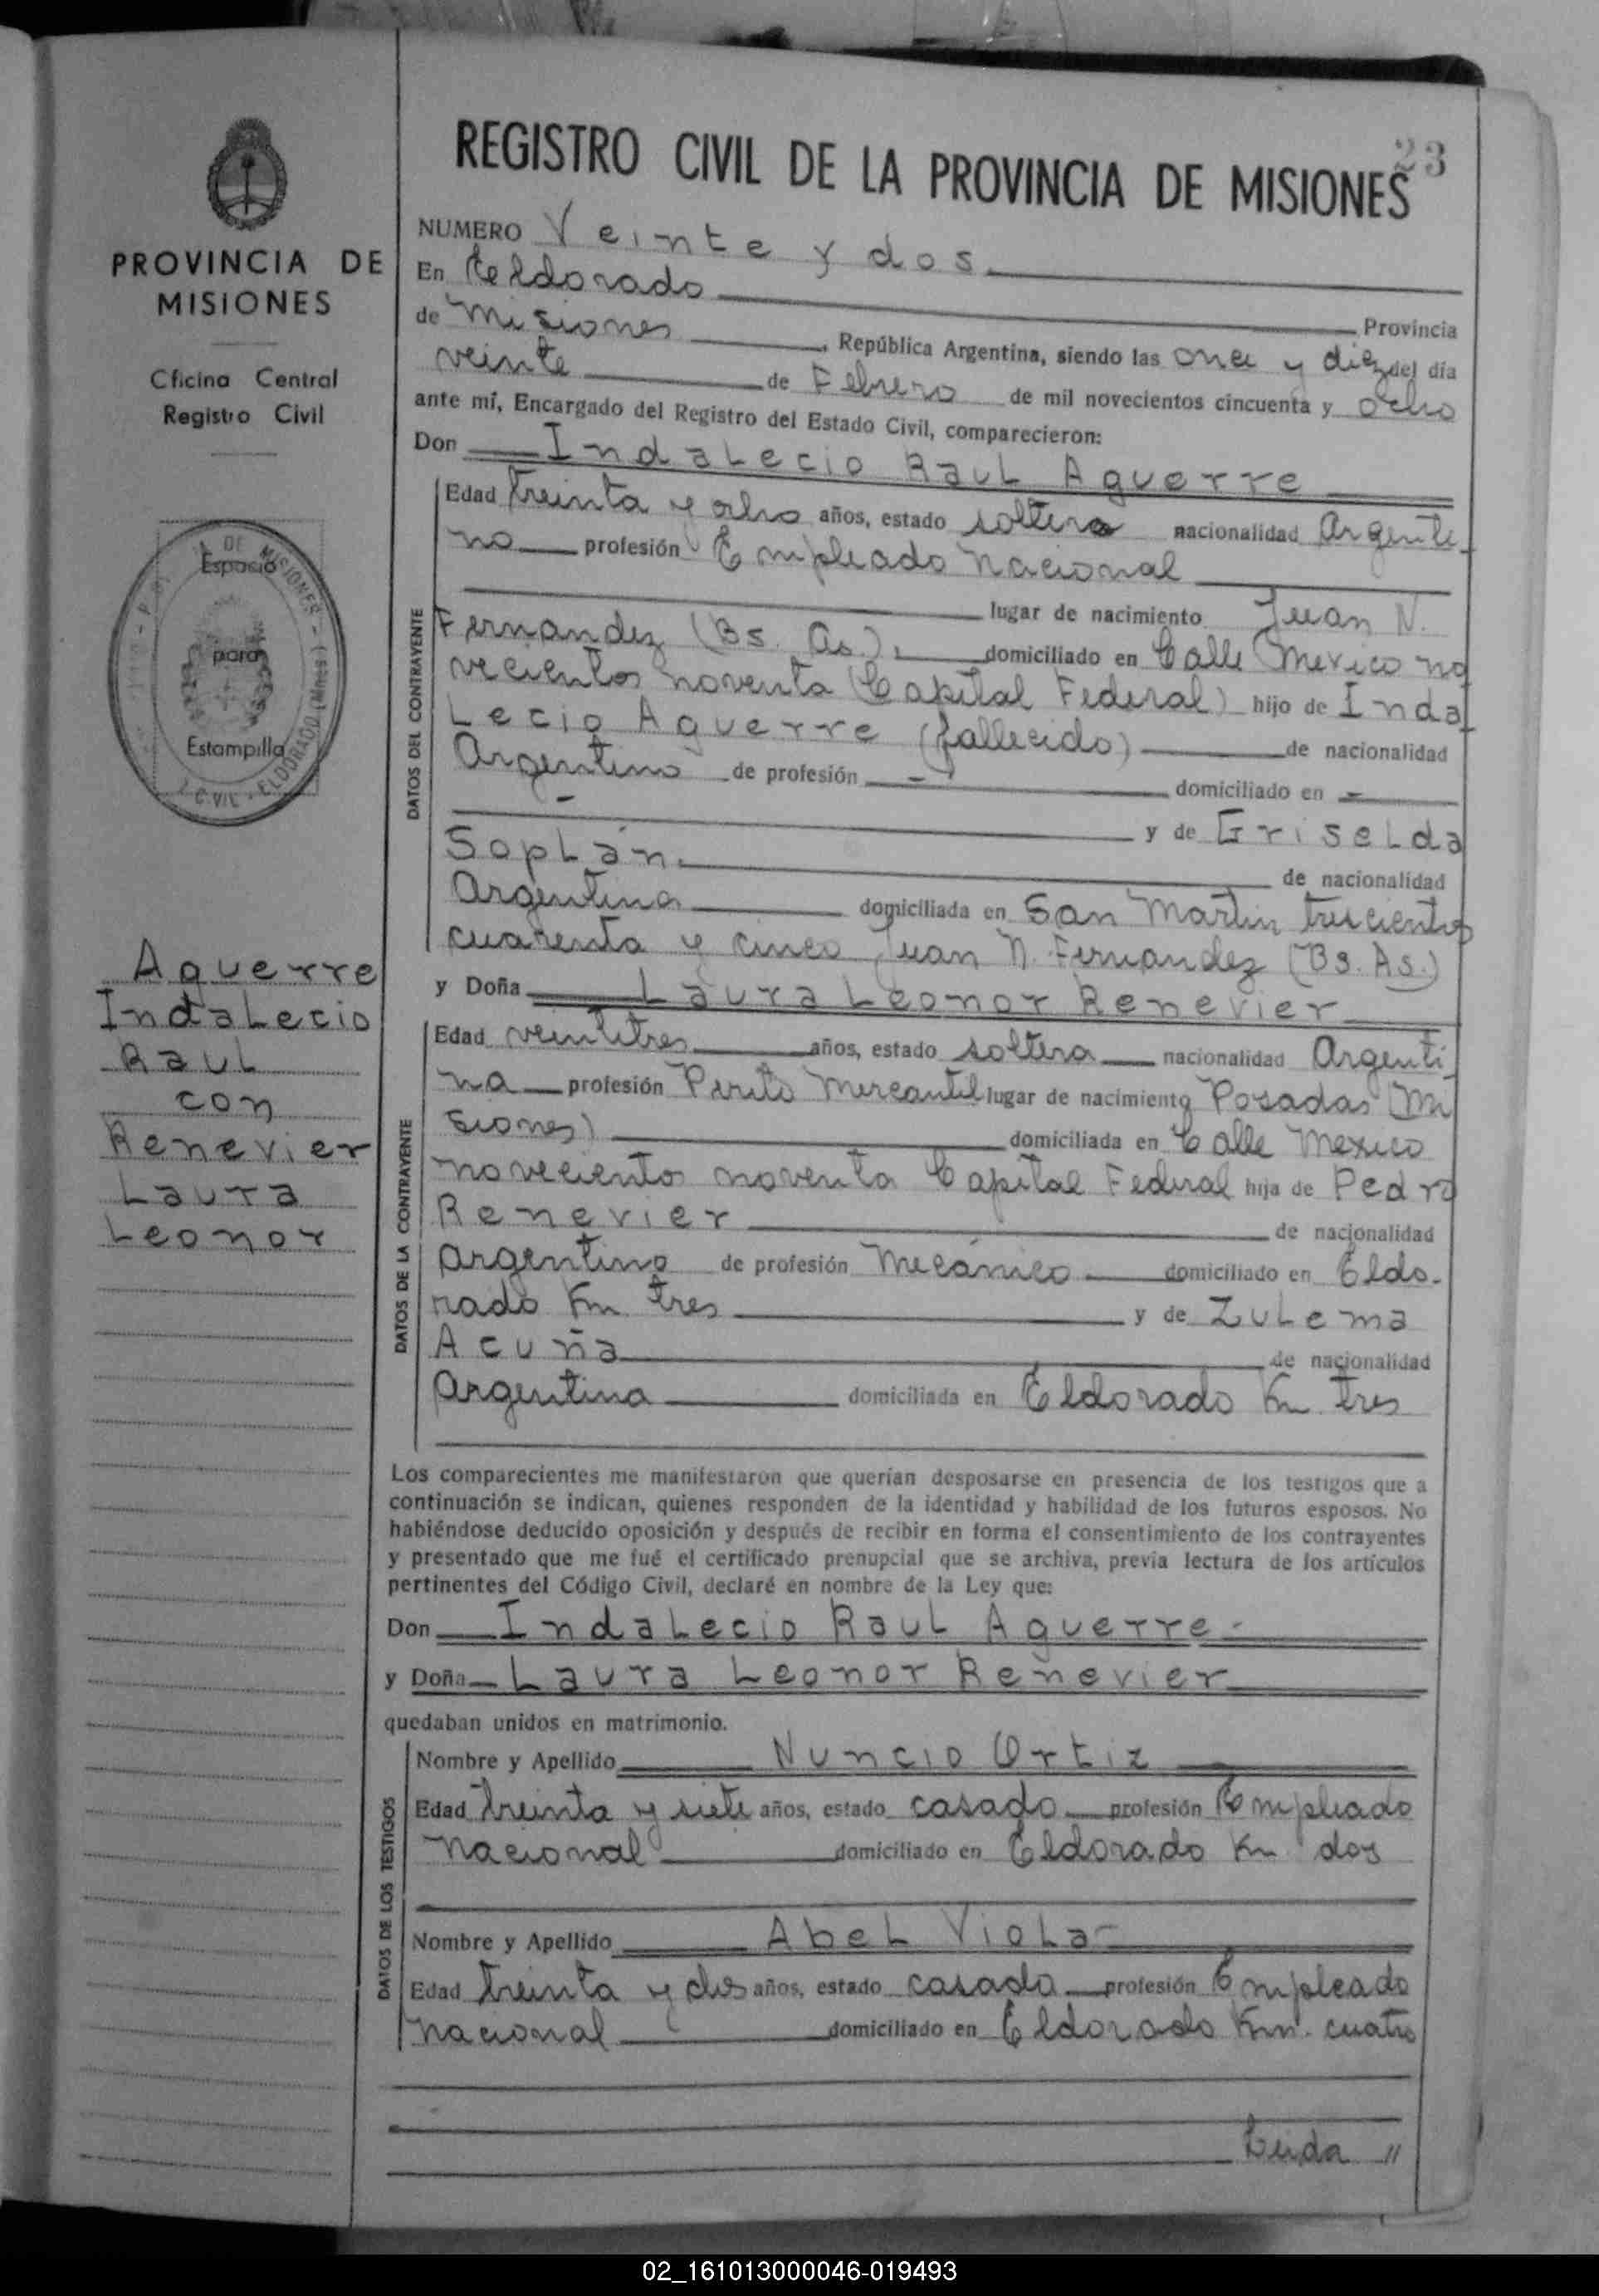 23
REGISTRO CIVIL DE LA PROVINCIA DE MISIONES
PROVINCIA DE
MISIONES
Oficina Central
Registro Civil
Espacio
para
Estampilla
DE MISIONES
ELDORADO (Mnes)
Aguerre
Indalecio
Raul
con
Renevier
Laura
Leonor
NUMERO Veinte y dos
En Eldorado Provincia
de Misiones, República Argentina, siendo las once y diez del día
veinte de Febrero de mil novecientos cincuenta y ocho
ante mí, Encargado del Registro del Estado Civil, comparecieron:
Don Indalecio Raul Aguerre
DATOS DEL CONTRAYENTE
Edad treinta y ocho años, estado soltero nacionalidad Argenti-
no profesión Empleado Nacional
lugar de nacimiento Juan N.
Fernandez (Bs. As.), domiciliado en Calle Mexico no
vecientos noventa (Capital Federal) hijo de Inda
Lecio Aguerre (fallecido) de nacionalidad
Argentino de profesión - domiciliado en -
- y de Griselda
Soplán de nacionalidad
Argentina domiciliada en San Martin trescientos
cuarenta y cinco Juan N. Fernandez (Bs. As.)
y Doña Laura Leonor Renevier
DATOS DE LA CONTRAYENTE
Edad veintitres años, estado soltera nacionalidad Argenti
na profesión Perito Mercantil lugar de nacimiento Posadas (Mi
siones) domiciliada en Calle Mexico
novecientos noventa Capital Federal hija de Pedro
Renevier de nacionalidad
Argentino de profesión Mecánico domiciliado en Eldo-
rado Km tres y de Zulema
Acuña de nacionalidad
Argentina domiciliada en Eldorado Km tres
Los comparecientes me manifestaron que querían desposarse en presencia de los testigos que a
continuación se indican, quienes responden de la identidad y habilidad de los futuros esposos. No
habiéndose deducido oposición y después de recibir en forma el consentimiento de los contrayentes
y presentado que me fué el certificado prenupcial que se archiva, previa lectura de los artículos
pertinentes del Código Civil, declaré en nombre de la Ley que:
Don Indalecio Raul Aguerre-
y Doña Laura Leonor Renevier
quedaban unidos en matrimonio.
DATOS DE LOS TESTIGOS
Nombre y Apellido Nuncio Ortiz
Edad treinta y siete años, estado casado profesión Empleado
Nacional domiciliado en Eldorado Km dos
Nombre y Apellido Abel Viola-
Edad treinta y dos años, estado casado profesión Empleado
Nacional domiciliado en Eldorado Km. cuatro
Leida "
02_161013000046-019493